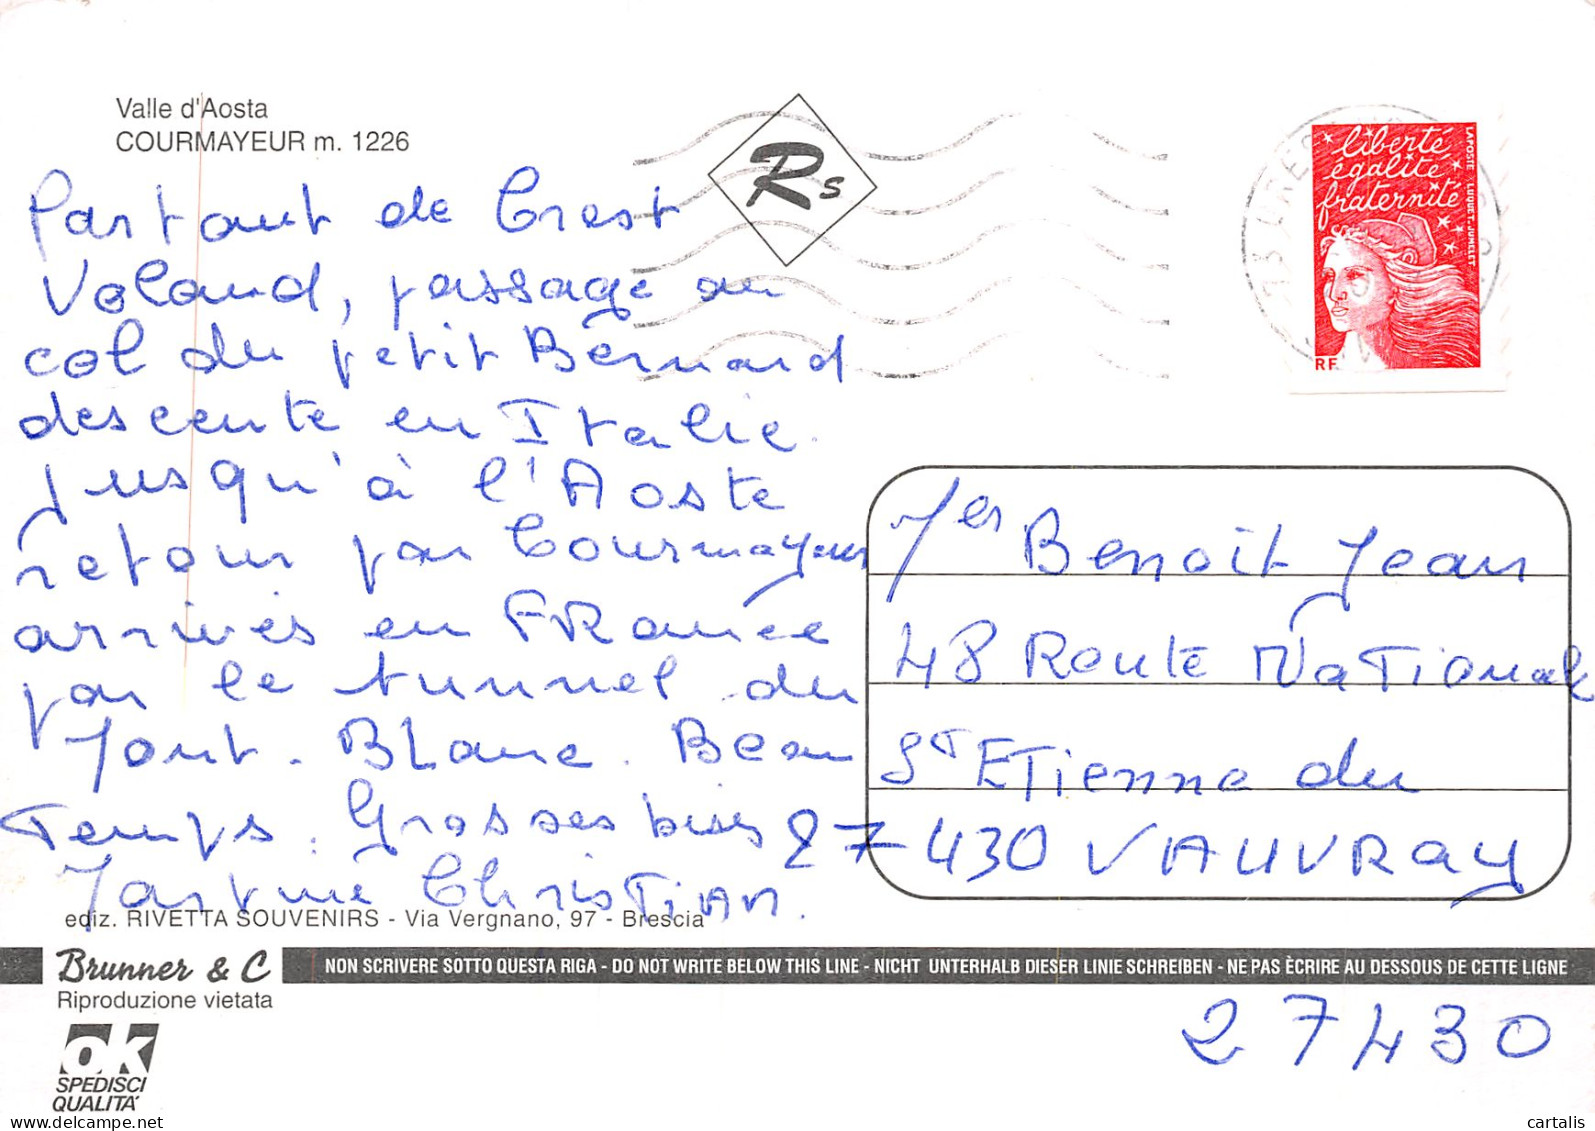 Valle d'Aosta
COURMAYEUR m. 1226
Partant de Crest
Voland, passage au
col du petit Bernard
descente en Italie
jusqu'à l'Aoste
retour par Courmayeur
arrivés en FRance
par le tunnel du
Mont. Blanc. Beau
Temps. Grosses bises
Martine ChrisTian.
Rs
liberté
égalité
fraternité
LA POSTE
LUQUET-JUMELET
RF
Mer Benoit Jean
48 Route NaTionale
ST ETienne du
27430 VAUVRay
ediz. RIVETTA SOUVENIRS - Via Vergnano, 97 - Brescia
Brunner & C
Riproduzione vietata
NON SCRIVERE SOTTO QUESTA RIGA - DO NOT WRITE BELOW THIS LINE - NICHT UNTERHALB DIESER LINIE SCHREIBEN - NE PAS ÈCRIRE AU DESSOUS DE CETTE LIGNE
27430
OK
SPEDISCI
QUALITA'
delcampe.net
cartalis